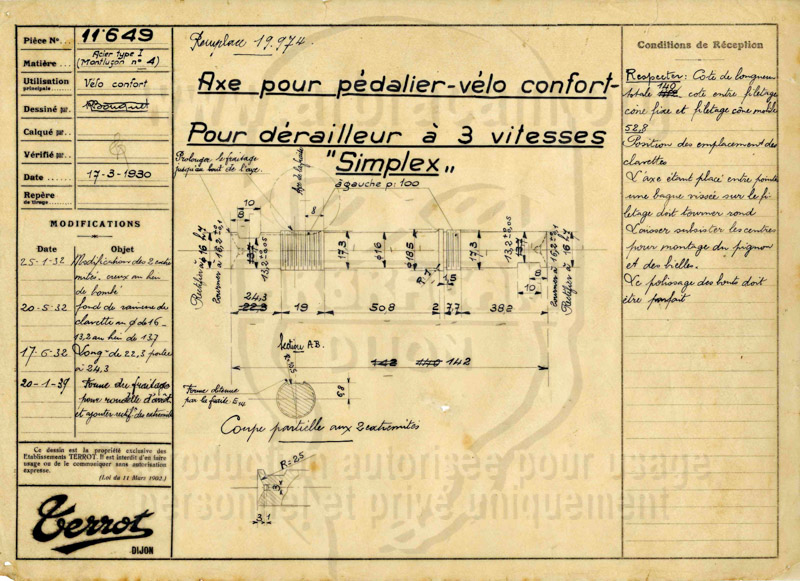 Pièce N°... 11649
Matière... Acier type I
(Montluçon n° 4)
Utilisation
principale... Vélo confort
Dessiné par.
Calqué par.
Vérifié par...
Date... 17-3-1930
Repère
de tirage...
MODIFICATIONS
Date Objet
25-1-32 Modification des 2 extré
mités, creux au lieu
de bombé
20-5-32 fond de rainure de
clavette au ø de 16-
13,2 au lieu de 13,7
17-6-32 Longr de 22,3 portée
à 24,3
20-1-39 Forme du fraisage
pour rondelle d'arrêt
et ajouter rectifon des extrémités
Ce dessin est la propriété exclusive des
Etablissements TERROT. Il est interdit d'en faire
usage ou de le communiquer sans autorisation
expresse.
(Loi du 11 Mars 1902.)
Terrot
DIJON
Remplace 19.974.
Axe pour pédalier-vélo confort-
Pour dérailleur à 3 vitesses
"Simplex"
Prolonger le fraisage
jusqu'au bout de l'axe.
Axe de la fraise
à gauche p: 100
10
8
8
Rectifier à 16 h7
Tourner à 16,2
13,7
13,2
17,3
ø16
ø18,5
17,3
13,2
13,7
Tourner à 16,2
Rectifier à 16 h7
R.1
1,5
8
10
24,3
22,3
19
50,8
2
7,7
38,2
142
140
142
Section A.B.
R=10,5
6,8
Forme obtenue
par la fraise E14
Coupe partielle aux 2 extrémités
R=25
3
3,1
Conditions de Réception
Respecter: Cote de longueur
totale 140 142 cote entre filetage
cône fixe et filetage cône mobile
52,8
Position des emplacements des
clavettes
L'axe étant placé entre pointes
une bague vissée sur le fi-
letage doit tourner rond
Laisser subsister les centres
pour montage du pignon
et des bielles.
Le polissage des bouts doit
être parfait
reproduction autorisée pour usage
personnel et privé uniquement